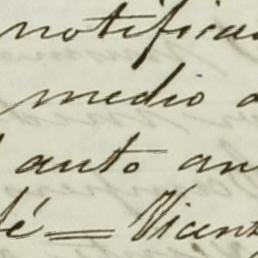 notifica
medio a
auto an
fé = Vicent